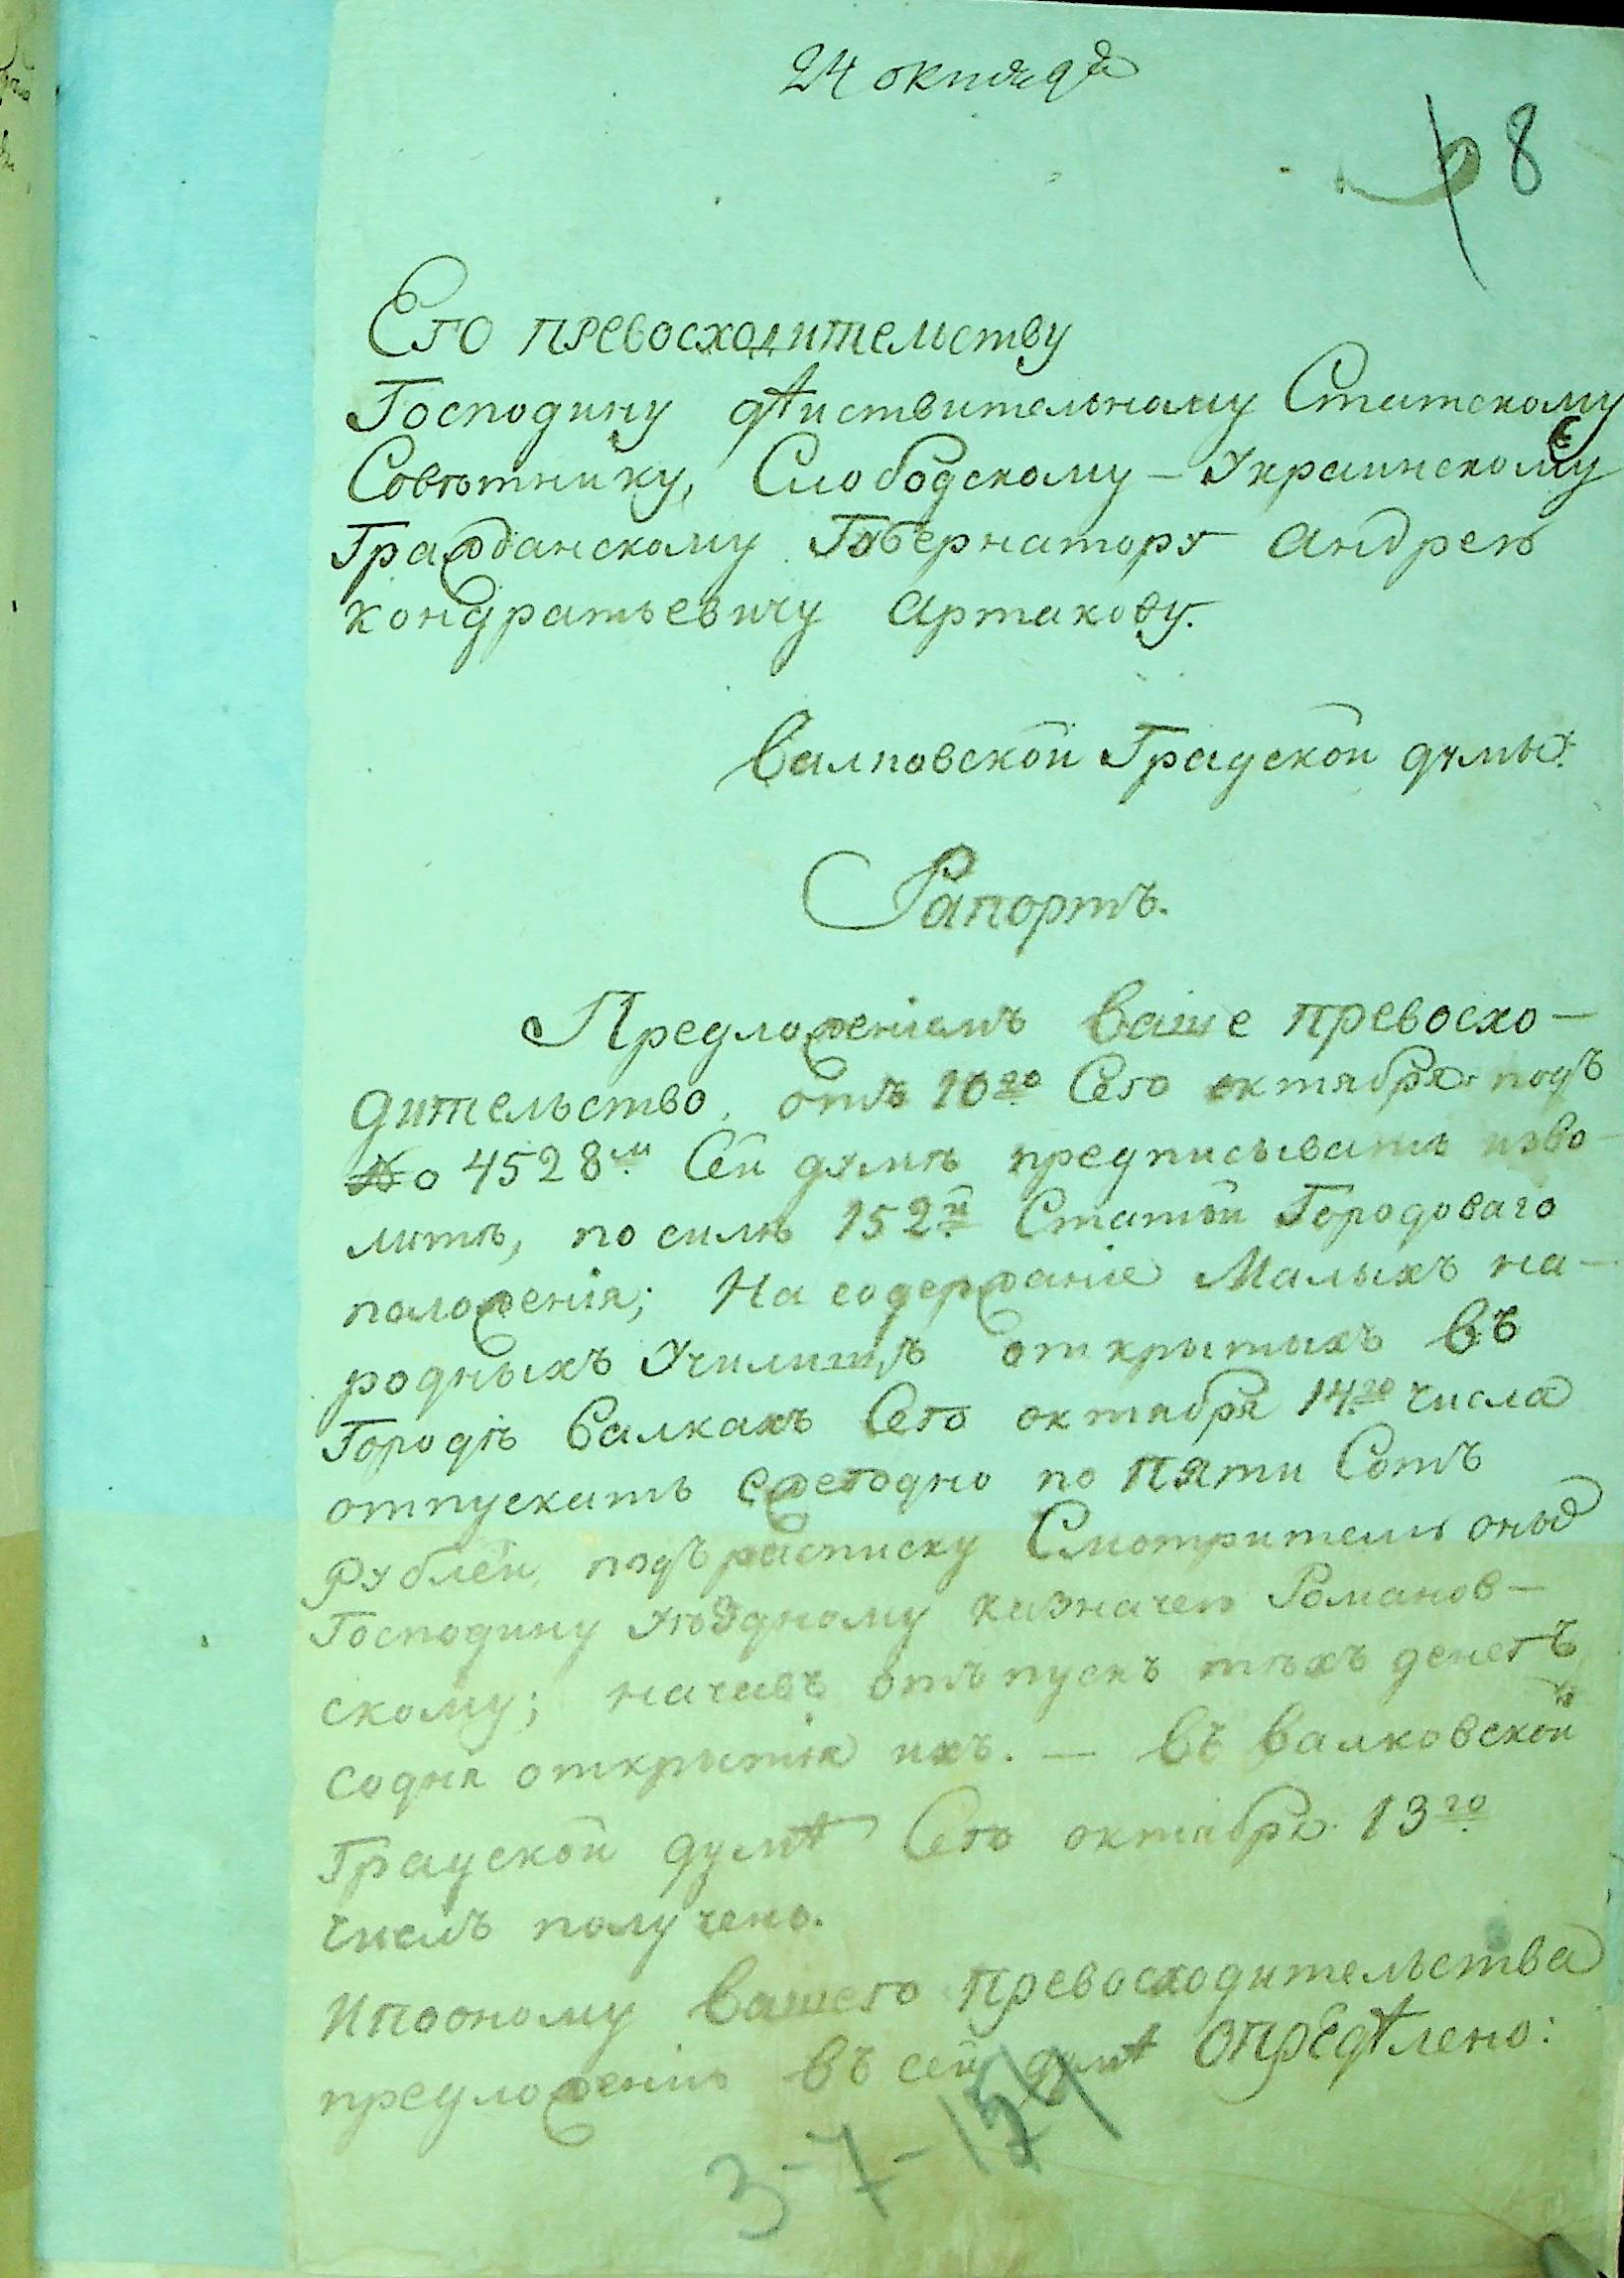 24 октября
8
Его превосходительству
Господину дѣиствительному Статскому
Совѣтнику, Слободскому – Украинскому
Гражданскому Губернатору Андрею
Кондратьевичу Артакову.
Валковской Градской думы:
Рапортъ.
Предложениемъ Ваше превосхо–
дительство, отъ 10го Сего октября подъ
No 4528м Сей думѣ предписывать изво–
литѣ, по силѣ 152й Статьи Городоваго
положенія; На содержание Малыхъ на–
родныхъ Училищъ открытыхъ въ
Городѣ Валкахъ Сего октября 14го числа
отпускать ежегодно по пяти Сотъ
рублей, подъ расписку Смотрителю оныхъ
Господину уѣздному казначею Романов–
скому; начавъ отъпускъ тѣхъ денегъ
содня открытия ихъ. – Въ Валковской
Градской думѣ Сего октября 13го
числъ получено.
Ипооному Вашего превосходительства
предложению въ сей думѣ опредѣлено:
3-7-154